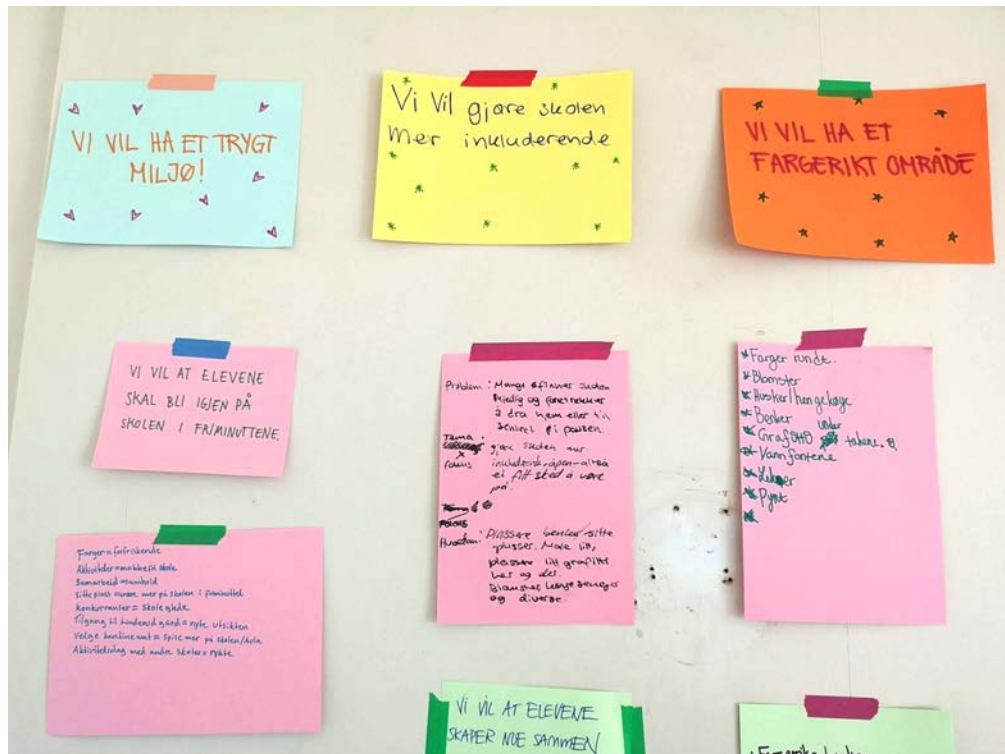 VI VIL HA ET TRYGT
MILJØ!
Vi Vil gjøre skolen
mer inkluderende
VI VIL HA ET
FARGERIKT OMRÅDE
VI VIL AT ELEVENE
SKAL BLI IGJEN PÅ
SKOLEN I FRIMINUTTENE.
Problem: Mange finner skolen
kjedelig og foretrekker
å dra hjem eller til
i pausen.
Tema
Fokus
gjøre skolen mer
inkluderende
et fint sted å være
på.
Fokus
Hvordan: Plassere benker sitte
plasser. Male litt,
plassere litt grafitti
her og der.
Blomster, henge
og diverse.
*Farger rundt.
*Blomster
*Husker/hengekøye
*Benker
*Grafitti under takene.
*Vannfontene
*Leker
*Pynt
*
Farger=forfriskende
Aktiviteter=mobbefri skole
Samarbeid=samhold
Sitteplass=være mer på skolen i friminuttet
Konkurranser=Skoleglede
Tilgang til gård=nyte utsikten
Velge kantinemat=Spise mer på skolen
Aktivitetsdag med andre skoler=rykte
VI VIL AT ELEVENE
SKAPER NOE SAMMEN